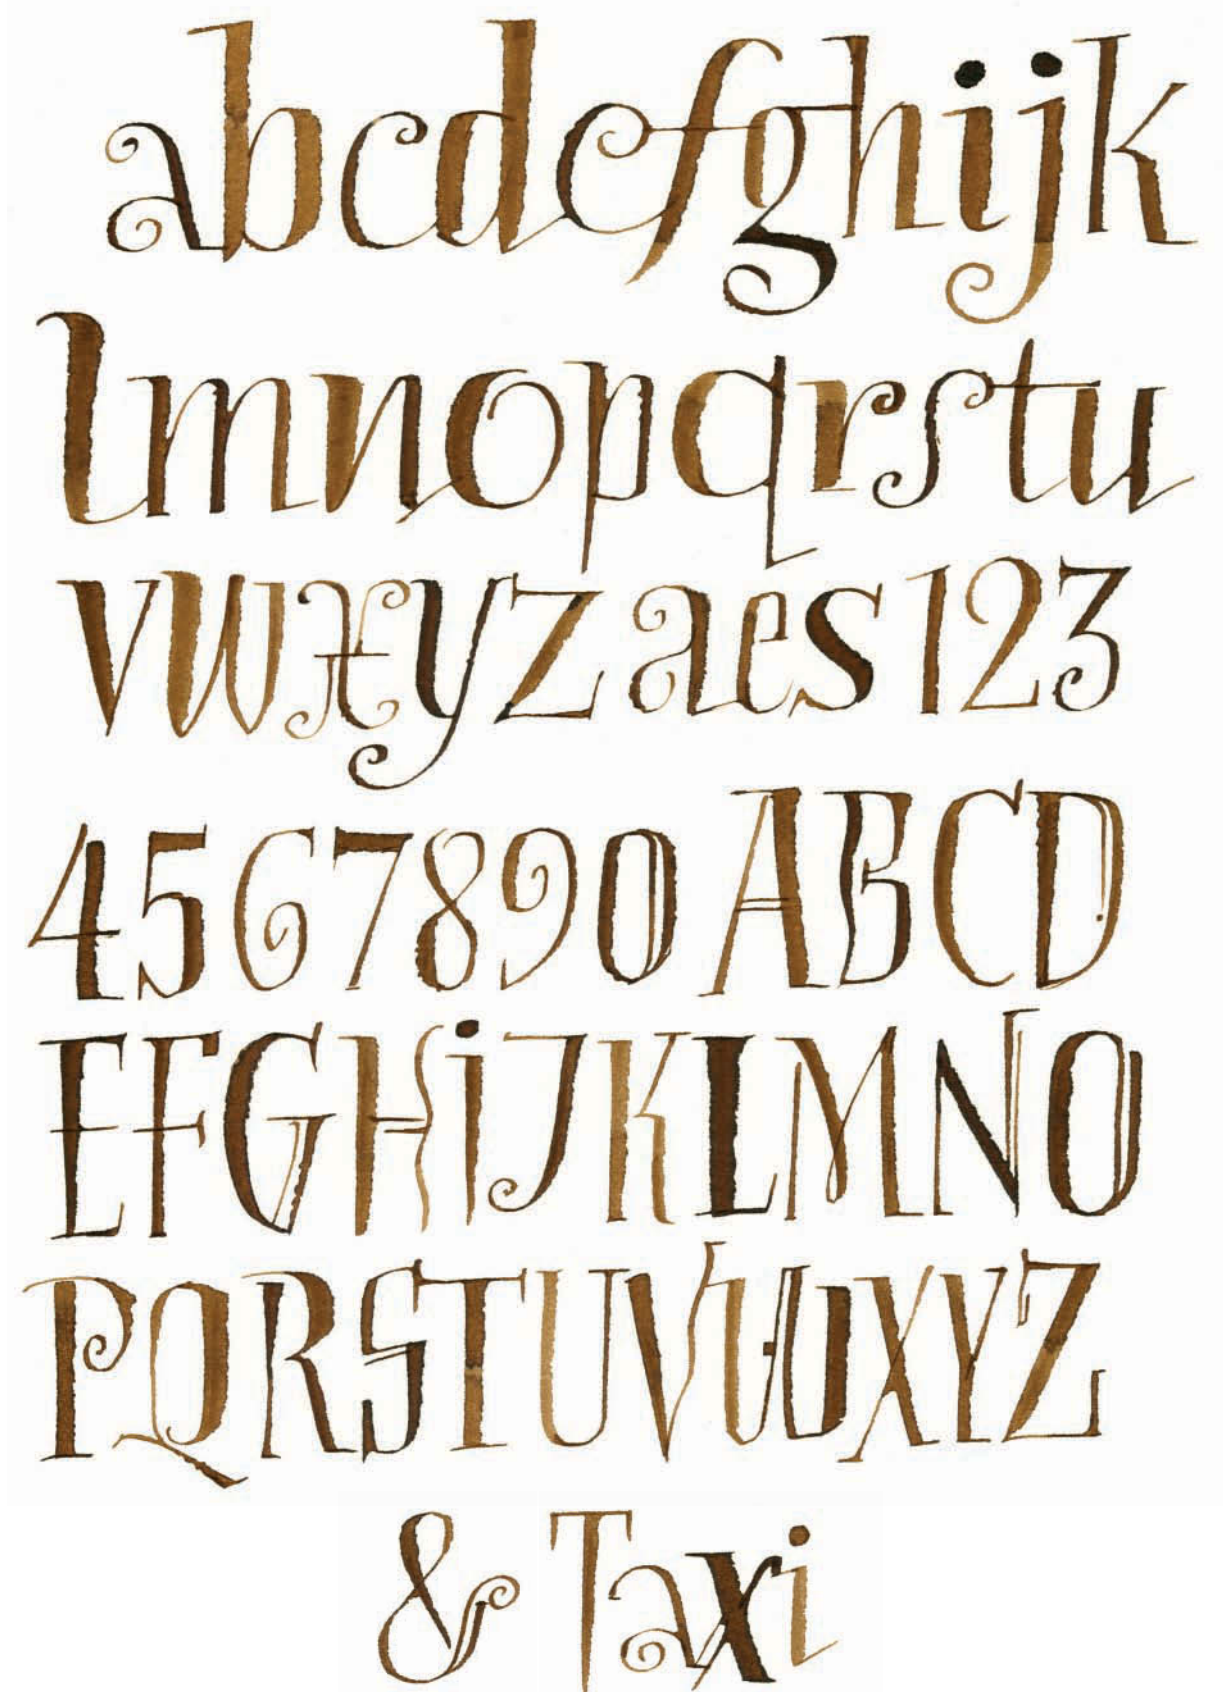 abcdefghijk
lmnopqrstu
vwxyz aes 123
4567890 ABCD
EFGHiJKLMNO
PQRSTUVWXYZ
& Taxi